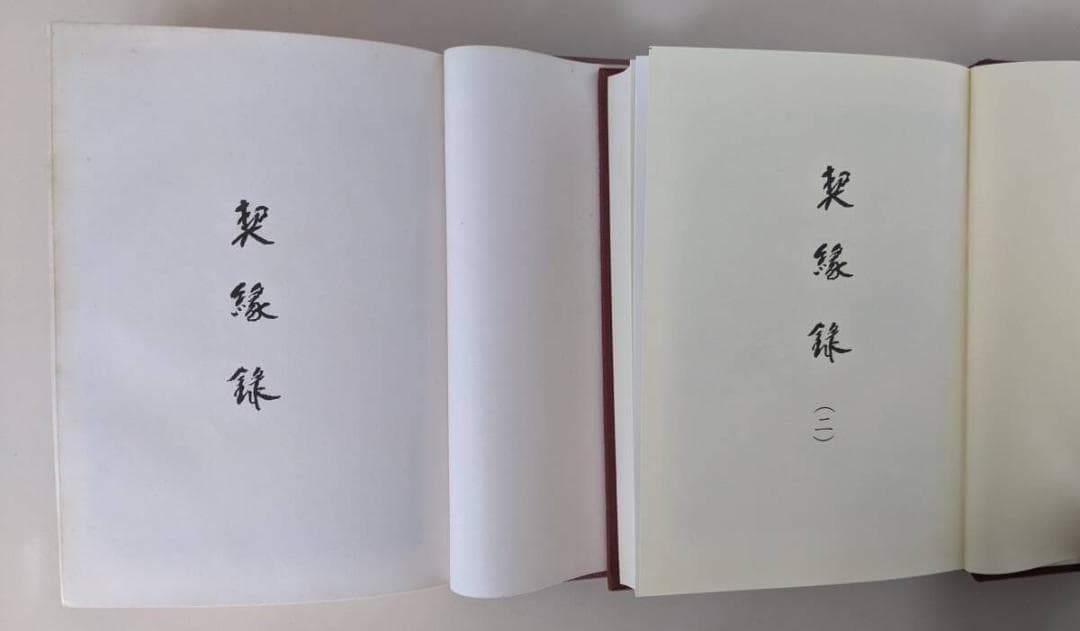 契緣錄
契緣錄
(二)